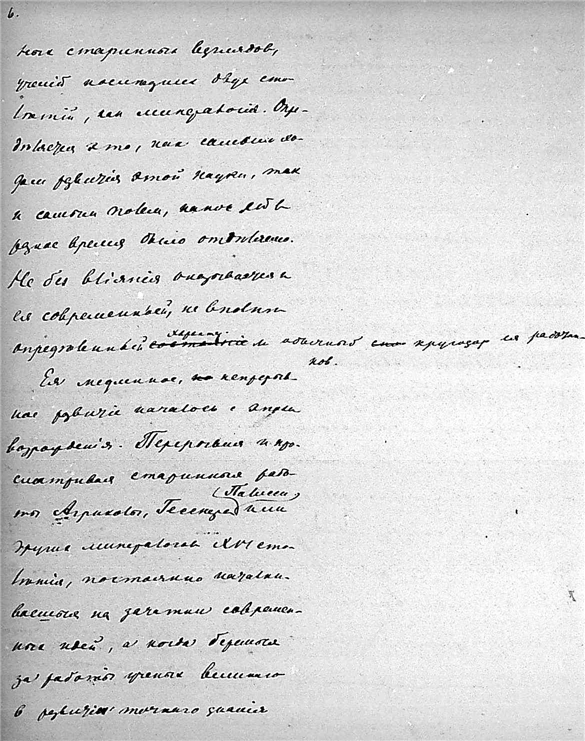 6.
ныхъ старинныхъ взглядовъ,
ученій последнихъ двухъ сто-
лѣтій, какъ минералогія. Опре-
дѣляется это, какъ самымъ хо-
домъ развитія этой науки, такъ
и самымъ полемъ, какое ей въ
разное время было отдѣляемо.
Не безъ вліянія оказывается и
ея современный, не вполнѣ
опредѣленный характ. и обычный кругозоръ ея работни-
ковъ.
Ея медленное, но непрерыв-
ное развитіе началось с эпохи
возрожденія. Перерывая и про-
сматривая старинныя рабо-
ты Агриколы, Геснера (Палисси) или
другихъ минералоговъ XVI сто-
лѣтія, постоянно наталки-
ваешься на зачатки современ-
ныхъ идей, а когда берешься
за работы ученыхъ великаго
в развитіи точнаго знанія